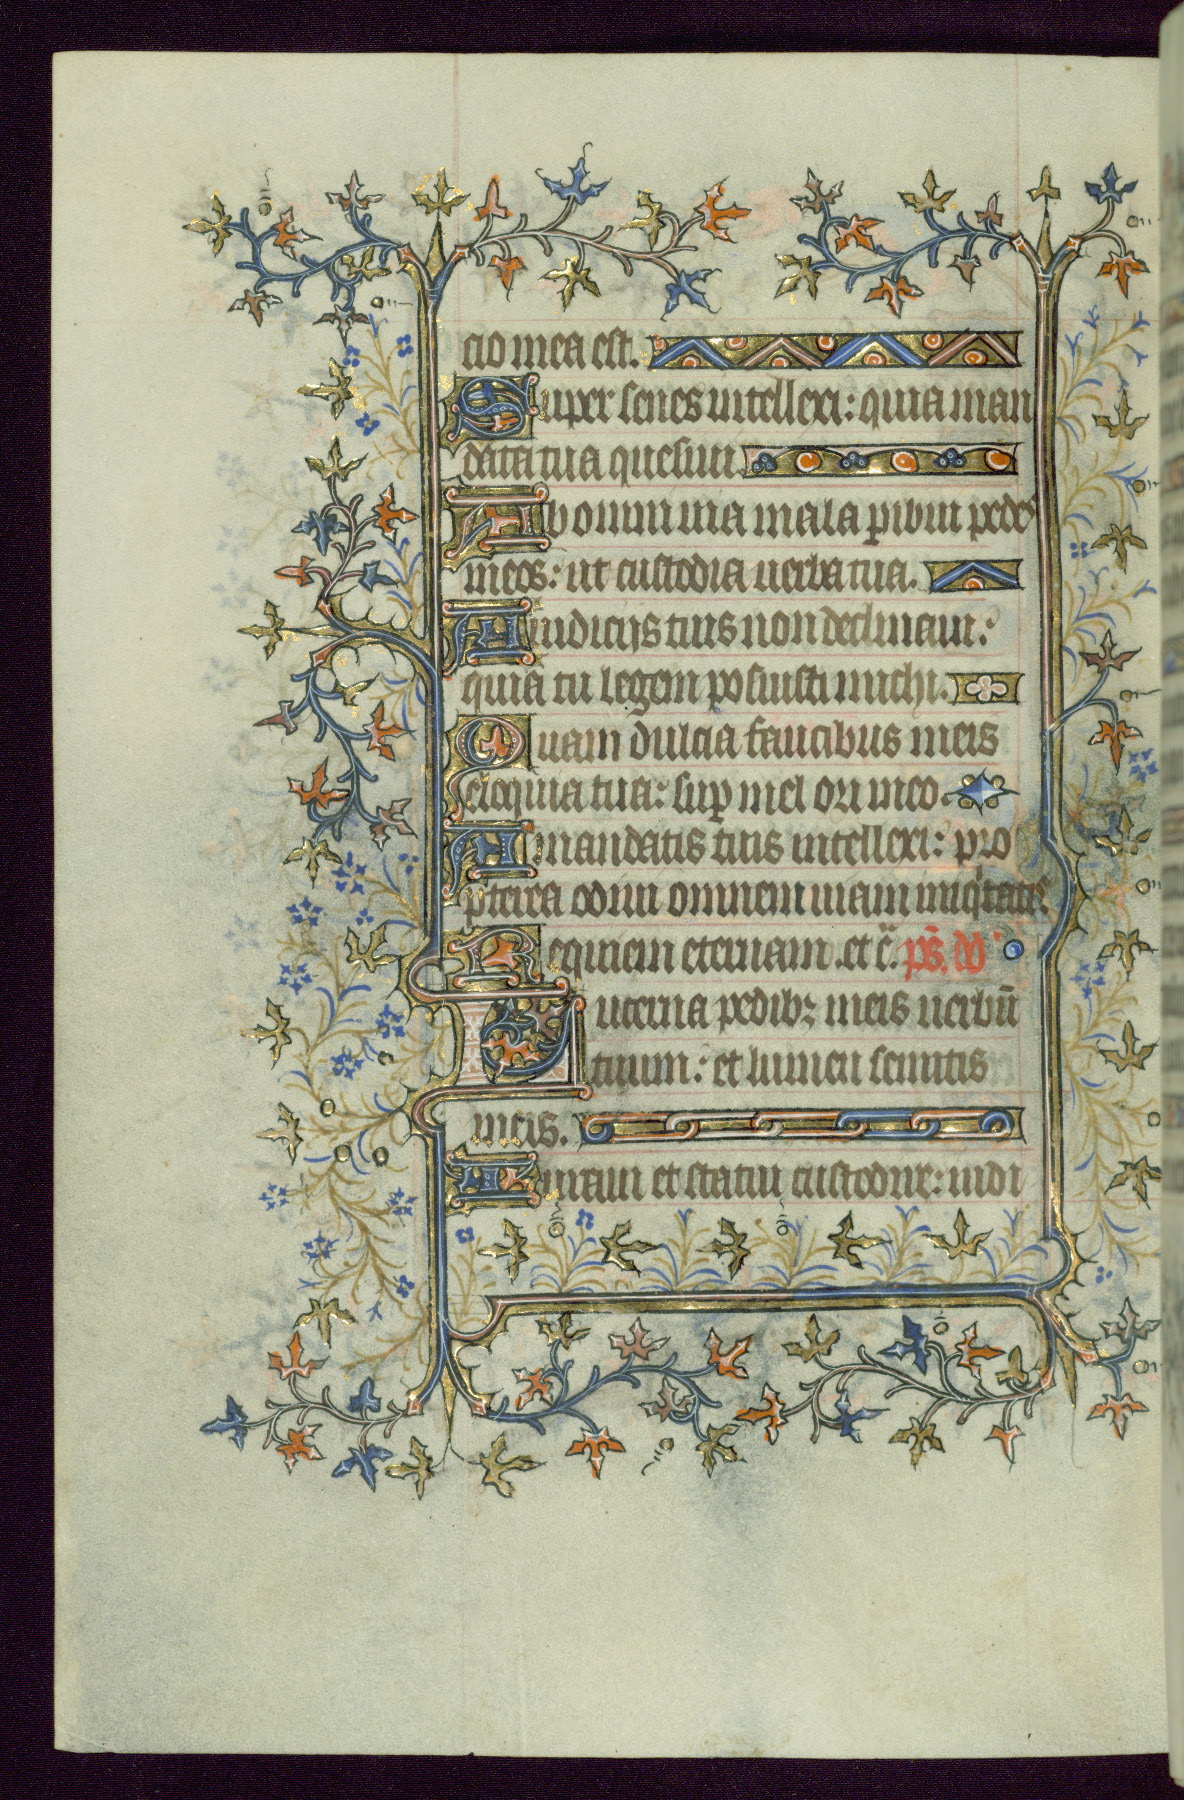 cio mea est.
Super senes intellexi: quia man
data tua quesiui.
Ab omni uia mala phibui pedes
meos: ut custodia uerba tua.
A iudicijs tuis non declinaui:
quia tu legem posuisti michi.
Quam dulcia faucibus meis
eloquia tua: sup mel ori meo.
A mandatis tuis intellexi: pro
pterea odiui omnem uiam iniqitatis
Requiem eternam. et c̄. ps̄. dd
Lucerna pedibꝫ meis uerbū
tuum: et lumen semitis
meis.
Iuraui et statui custodire: iudi